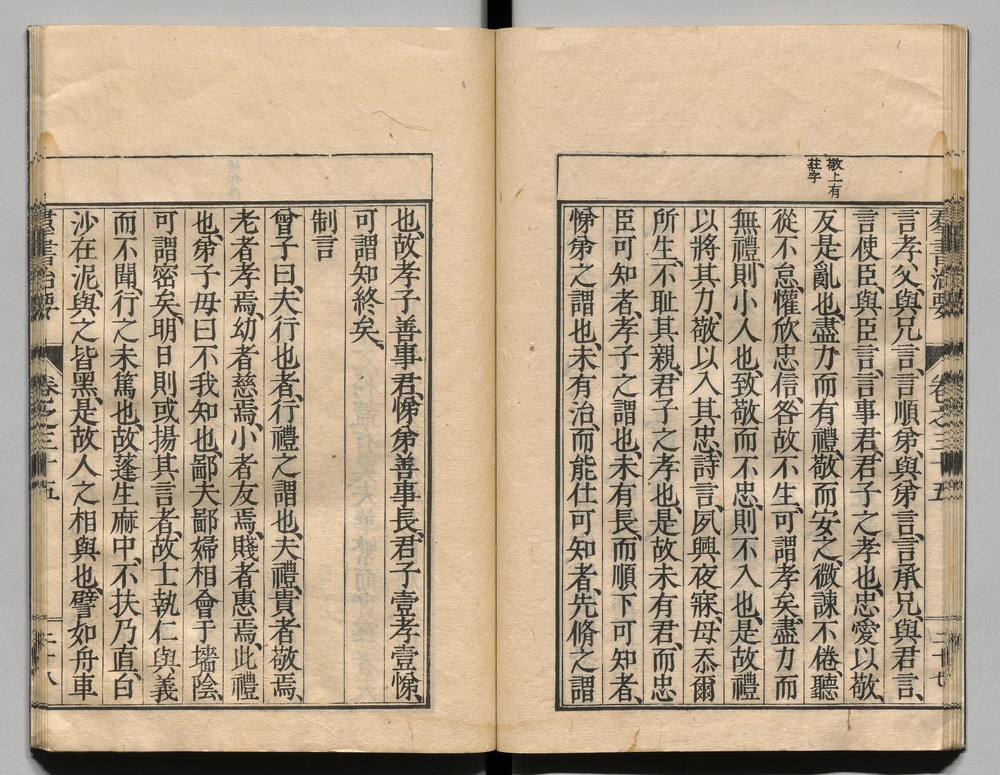 羣書治要 卷之三十五 二十七
敬上有
莊字
言孝、父與兄言、言順弟、與弟言、言承兄、與君言、
言使臣、與臣言、言事君、君子之孝也、忠愛以敬、
反是亂也、盡力而有禮、敬而安之、微諫不倦、聽
從不怠、懽欣忠信、咎故不生、可謂孝矣、盡力而
無禮、則小人也、致敬而不忠、則不入也、是故禮
以將其力、敬以入其忠、詩言、夙興夜寐、毋忝爾
所生、不恥其親、君子之孝也、是故未有君、而忠
臣可知者、孝子之謂也、未有長、而順下可知者、
悌弟之謂也、未有治、而能仕可知者、先脩之謂
也、故孝子善事君、悌弟善事長、君子壹孝壹悌、
可謂知終矣、
制言
曾子曰、夫行也者、行禮之謂也、夫禮、貴者敬焉、
老者孝焉、幼者慈焉、小者友焉、賤者惠焉、此禮
也、弟子毋曰不我知也、鄙夫鄙婦相會于墻陰、
可謂密矣、明日則或揚其言者、故士執仁與義
而不聞、行之未篤也、故蓬生麻中、不扶乃直、白
沙在泥、與之皆黑、是故人之相與也、譬如舟車
羣書治要 卷之三十五 二十八